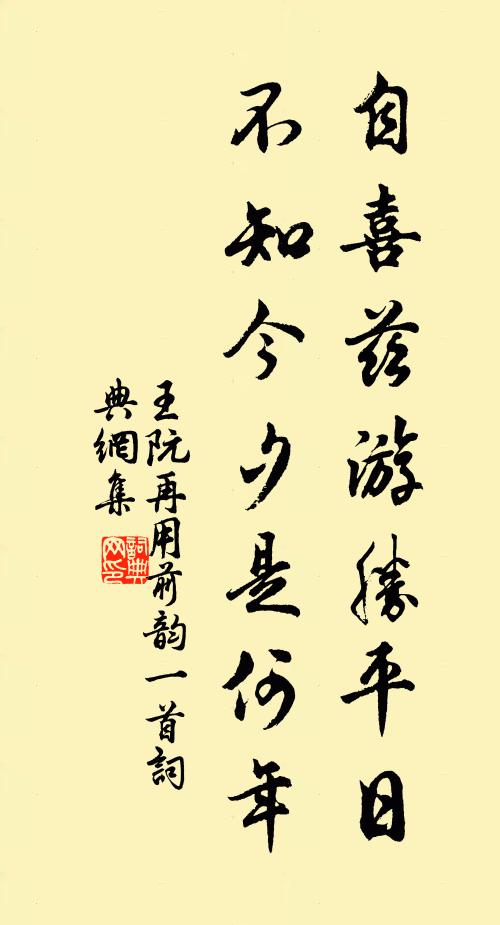 自喜茲游勝平日
不知今夕是何年
王阮再用前韵一首詞
典網集
詞典
网印